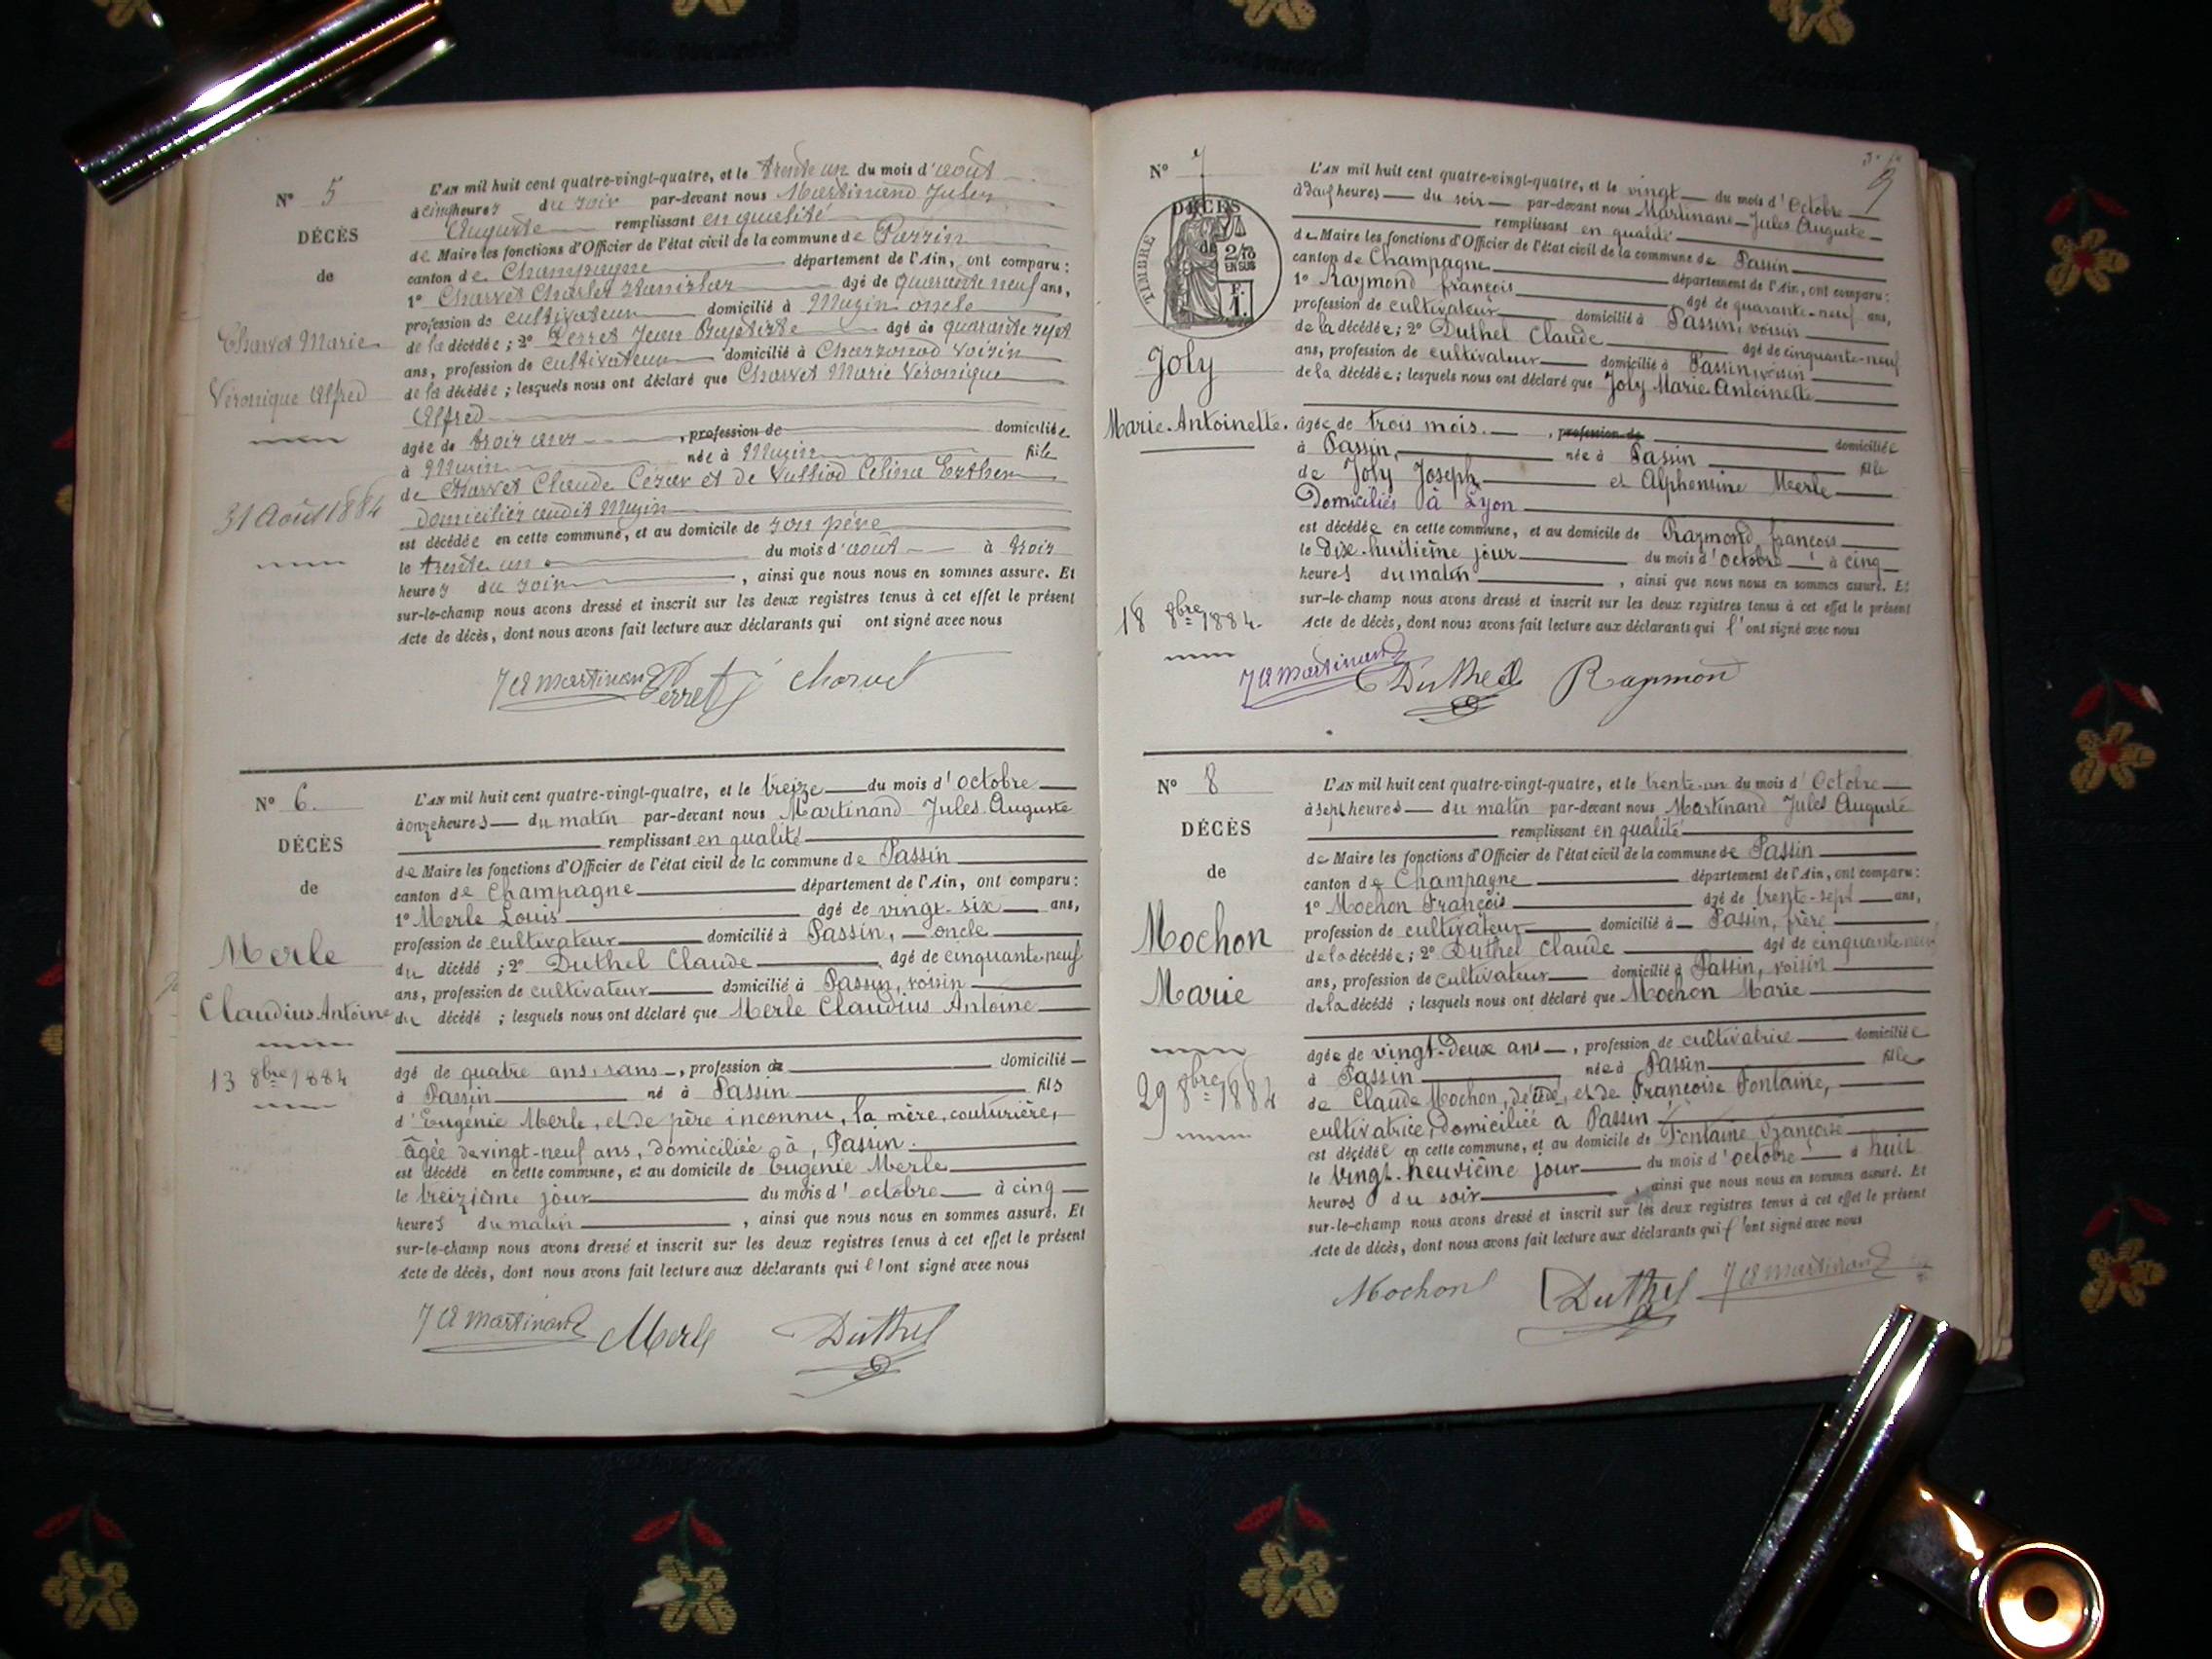 N° 5
DÉCÈS
de
Charvet Marie
Véronique Alfred
31 Août 1884
L'AN mil huit cent quatre-vingt-quatre, et le trente un du mois d'août
à cinq heures du soir par-devant nous Martinand Jules
Auguste remplissant en qualité
de Maire les fonctions d'Officier de l'état civil de la commune de Passin
canton de Champagne département de l'Ain, ont comparu :
1° Charvet Charles Stanislas âgé de quarante neuf ans,
profession de cultivateur domicilié à Muzin oncle
de la décédée ; 2° Perret Jean Baptiste âgé de quarante sept
ans, profession de cultivateur domicilié à Charzonod voisin
de la décédée ; lesquels nous ont déclaré que Charvet Marie Véronique
Alfred
âgée de trois ans , profession de domiciliée
à Muzin née à Muzin fille
de Charvet Claude Cézar et de Vulliod Célina Esther
domiciliés audit Muzin
est décédée en cette commune, et au domicile de son père
le trente un du mois d'août à trois
heures du soir , ainsi que nous nous en sommes assuré. Et
sur-le-champ nous avons dressé et inscrit sur les deux registres tenus à cet effet le présent
Acte de décès, dont nous avons fait lecture aux déclarants qui ont signé avec nous
J A Martinand Perret J Charvet
N° 6.
DÉCÈS
de
Merle
Claudius Antoine
13 8bre 1884
L'AN mil huit cent quatre-vingt-quatre, et le treize du mois d'octobre
à onze heures du matin par-devant nous Martinand Jules Auguste
remplissant en qualité
de Maire les fonctions d'Officier de l'état civil de la commune de Passin
canton de Champagne département de l'Ain, ont comparu :
1° Merle Louis âgé de vingt-six ans,
profession de cultivateur domicilié à Passin, oncle
du décédé ; 2° Duthel Claude âgé de cinquante-neuf
ans, profession de cultivateur domicilié à Passin, voisin
du décédé ; lesquels nous ont déclaré que Merle Claudius Antoine
âgé de quatre ans, sans , profession de domicilié
à Passin né à Passin fils
d'Eugénie Merle, et de père inconnu, la mère, couturière,
âgée de vingt-neuf ans, domiciliée à, Passin.
est décédé en cette commune, et au domicile de Eugénie Merle
le treizième jour du mois d'octobre à cinq
heures du matin , ainsi que nous nous en sommes assuré. Et
sur-le-champ nous avons dressé et inscrit sur les deux registres tenus à cet effet le présent
Acte de décès, dont nous avons fait lecture aux déclarants qui l'ont signé avec nous
J A Martinand Merle Duthel
N° 7
DÉCÈS
TIMBRE
2/10
EN SUS
F.
1.
Joly
Marie-Antoinette.
18 8bre 1884.
9
L'AN mil huit cent quatre-vingt-quatre, et le vingt du mois d'Octobre
à deux heures du soir par-devant nous Martinand Jules Auguste
remplissant en qualité
de Maire les fonctions d'Officier de l'état civil de la commune de Passin
canton de Champagne département de l'Ain, ont comparu :
1° Raymond françois âgé de quarante-neuf ans,
profession de cultivateur domicilié à Passin, voisin
de la décédée ; 2° Duthel Claude âgé de cinquante-neuf
ans, profession de cultivateur domicilié à Passin, voisin
de la décédée ; lesquels nous ont déclaré que Joly Marie-Antoinette
âgée de trois mois. , profession de domiciliée
à Passin, née à Passin fille
de Joly Joseph et Alphonsine Merle
Domiciliés à Lyon
est décédée en cette commune, et au domicile de Raymond françois
le Dix-huitième jour du mois d'octobre à cinq
heures du matin , ainsi que nous nous en sommes assuré. Et
sur-le-champ nous avons dressé et inscrit sur les deux registres tenus à cet effet le présent
Acte de décès, dont nous avons fait lecture aux déclarants qui l'ont signé avec nous
J A Martinand Duthel Raymond
N° 8
DÉCÈS
de
Mochon
Marie
29 8bre 1884
L'AN mil huit cent quatre-vingt-quatre, et le trente-un du mois d'Octobre
à sept heures du matin par-devant nous Martinand Jules Auguste
remplissant en qualité
de Maire les fonctions d'Officier de l'état civil de la commune de Passin
canton de Champagne département de l'Ain, ont comparu :
1° Mochon François âgé de trente-sept ans,
profession de cultivateur domicilié à Passin, frère
de la décédée ; 2° Duthel Claude âgé de cinquante-neuf
ans, profession de cultivateur domicilié à Passin, voisin
de la décédé ; lesquels nous ont déclaré que Mochon Marie
âgée de vingt-deux ans , profession de cultivatrice domiciliée
à Passin née à Passin fille
de Claude Mochon, décédé, et de Françoise Fontaine,
cultivatrice, domiciliée à Passin
est décédée en cette commune, et au domicile de Fontaine Françoise
le vingt-neuvième jour du mois d'octobre à huit
heures du soir , ainsi que nous nous en sommes assuré. Et
sur-le-champ nous avons dressé et inscrit sur les deux registres tenus à cet effet le présent
Acte de décès, dont nous avons fait lecture aux déclarants qui l'ont signé avec nous
Mochon Duthel J A Martinand